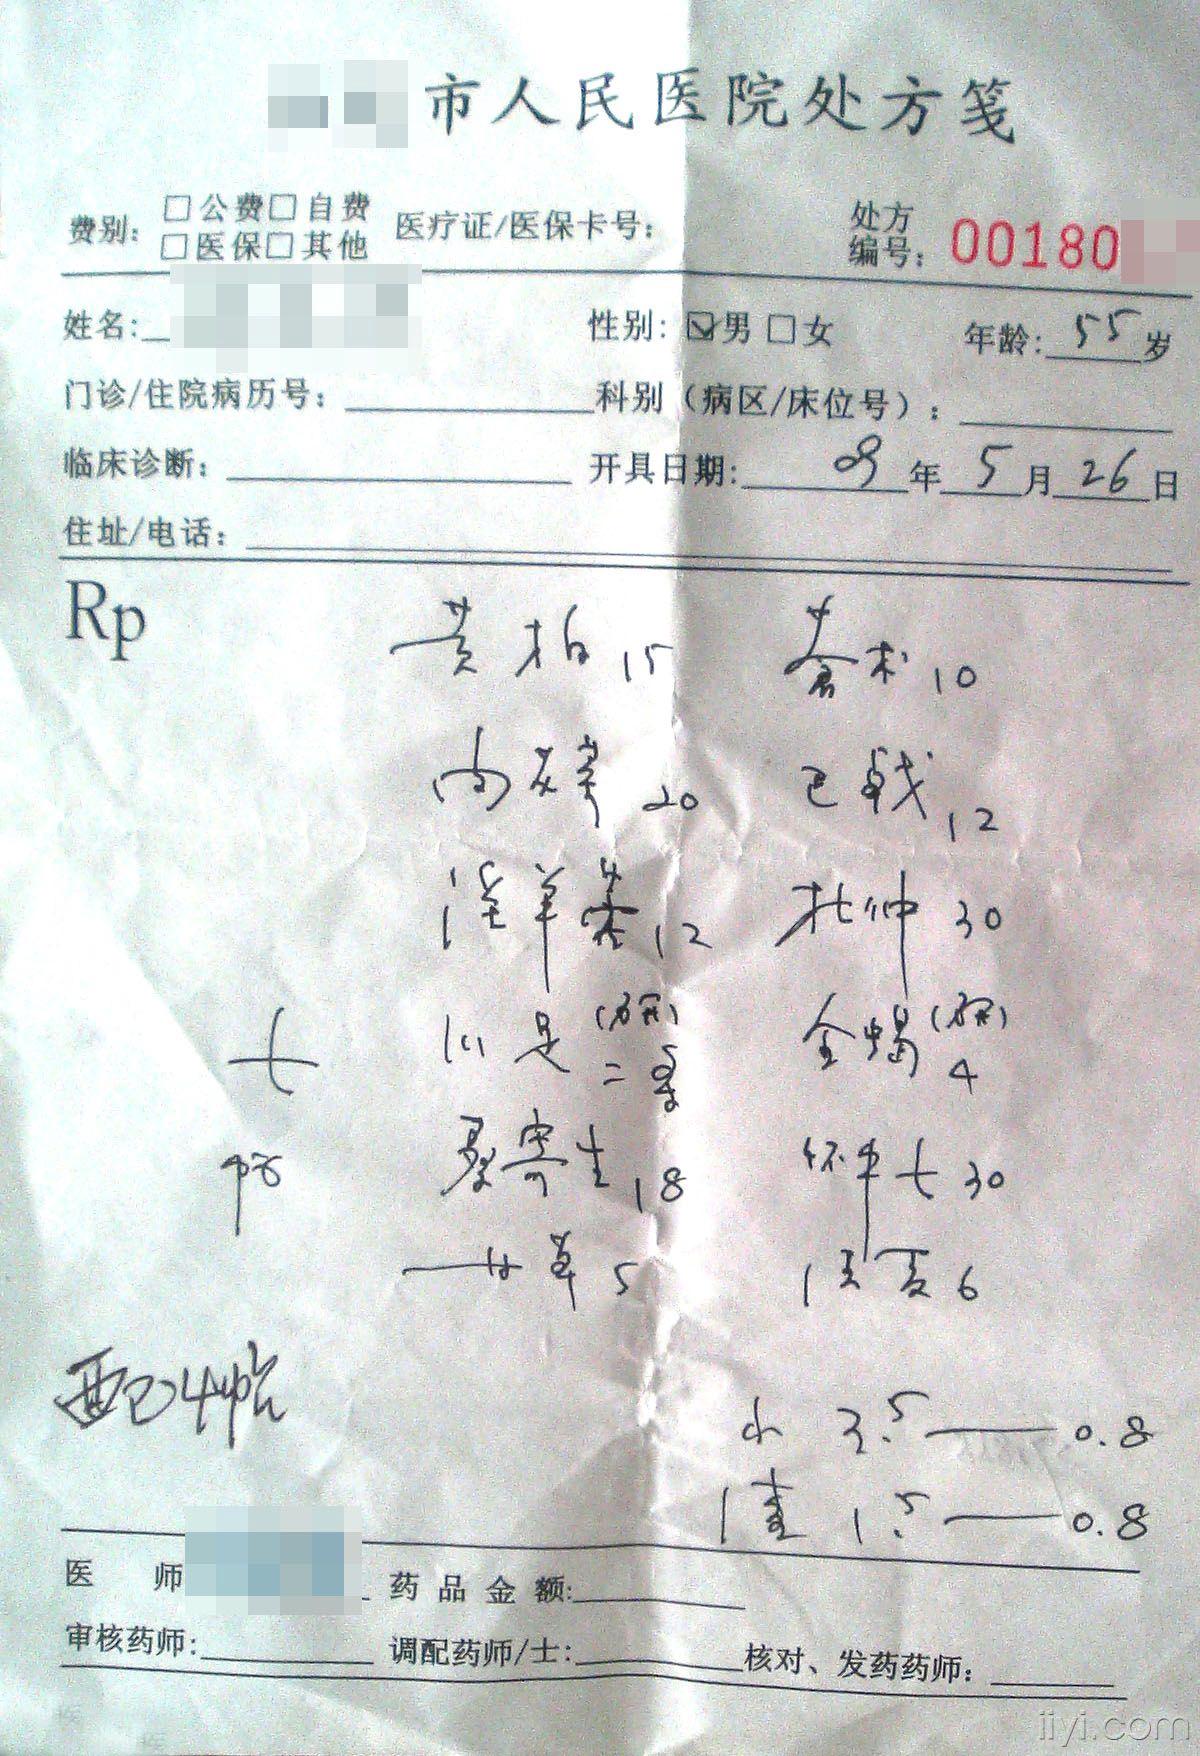 市人民医院处方笺
费别: □公费□自费 □医保□其他 医疗证/医保卡号: 处方编号: 00180
姓名: 性别: ☑男 □女 年龄: 55岁
门诊/住院病历号: 科别（病区/床位号）:
临床诊断: 开具日期: 09年5月26日
住址/电话:
Rp
黄柏15 苍术10
20 巴戟12
淫羊藿12 杜仲30
川足 二条 全蝎 4
七
帖 桑寄生18 怀牛七30
甘草5 法夏6
配4帖
水 3.5——0.8
渣 1.5——0.8
医 师 药品金额:
审核药师: 调配药师/士: 核对、发药药师:
iiyi.com